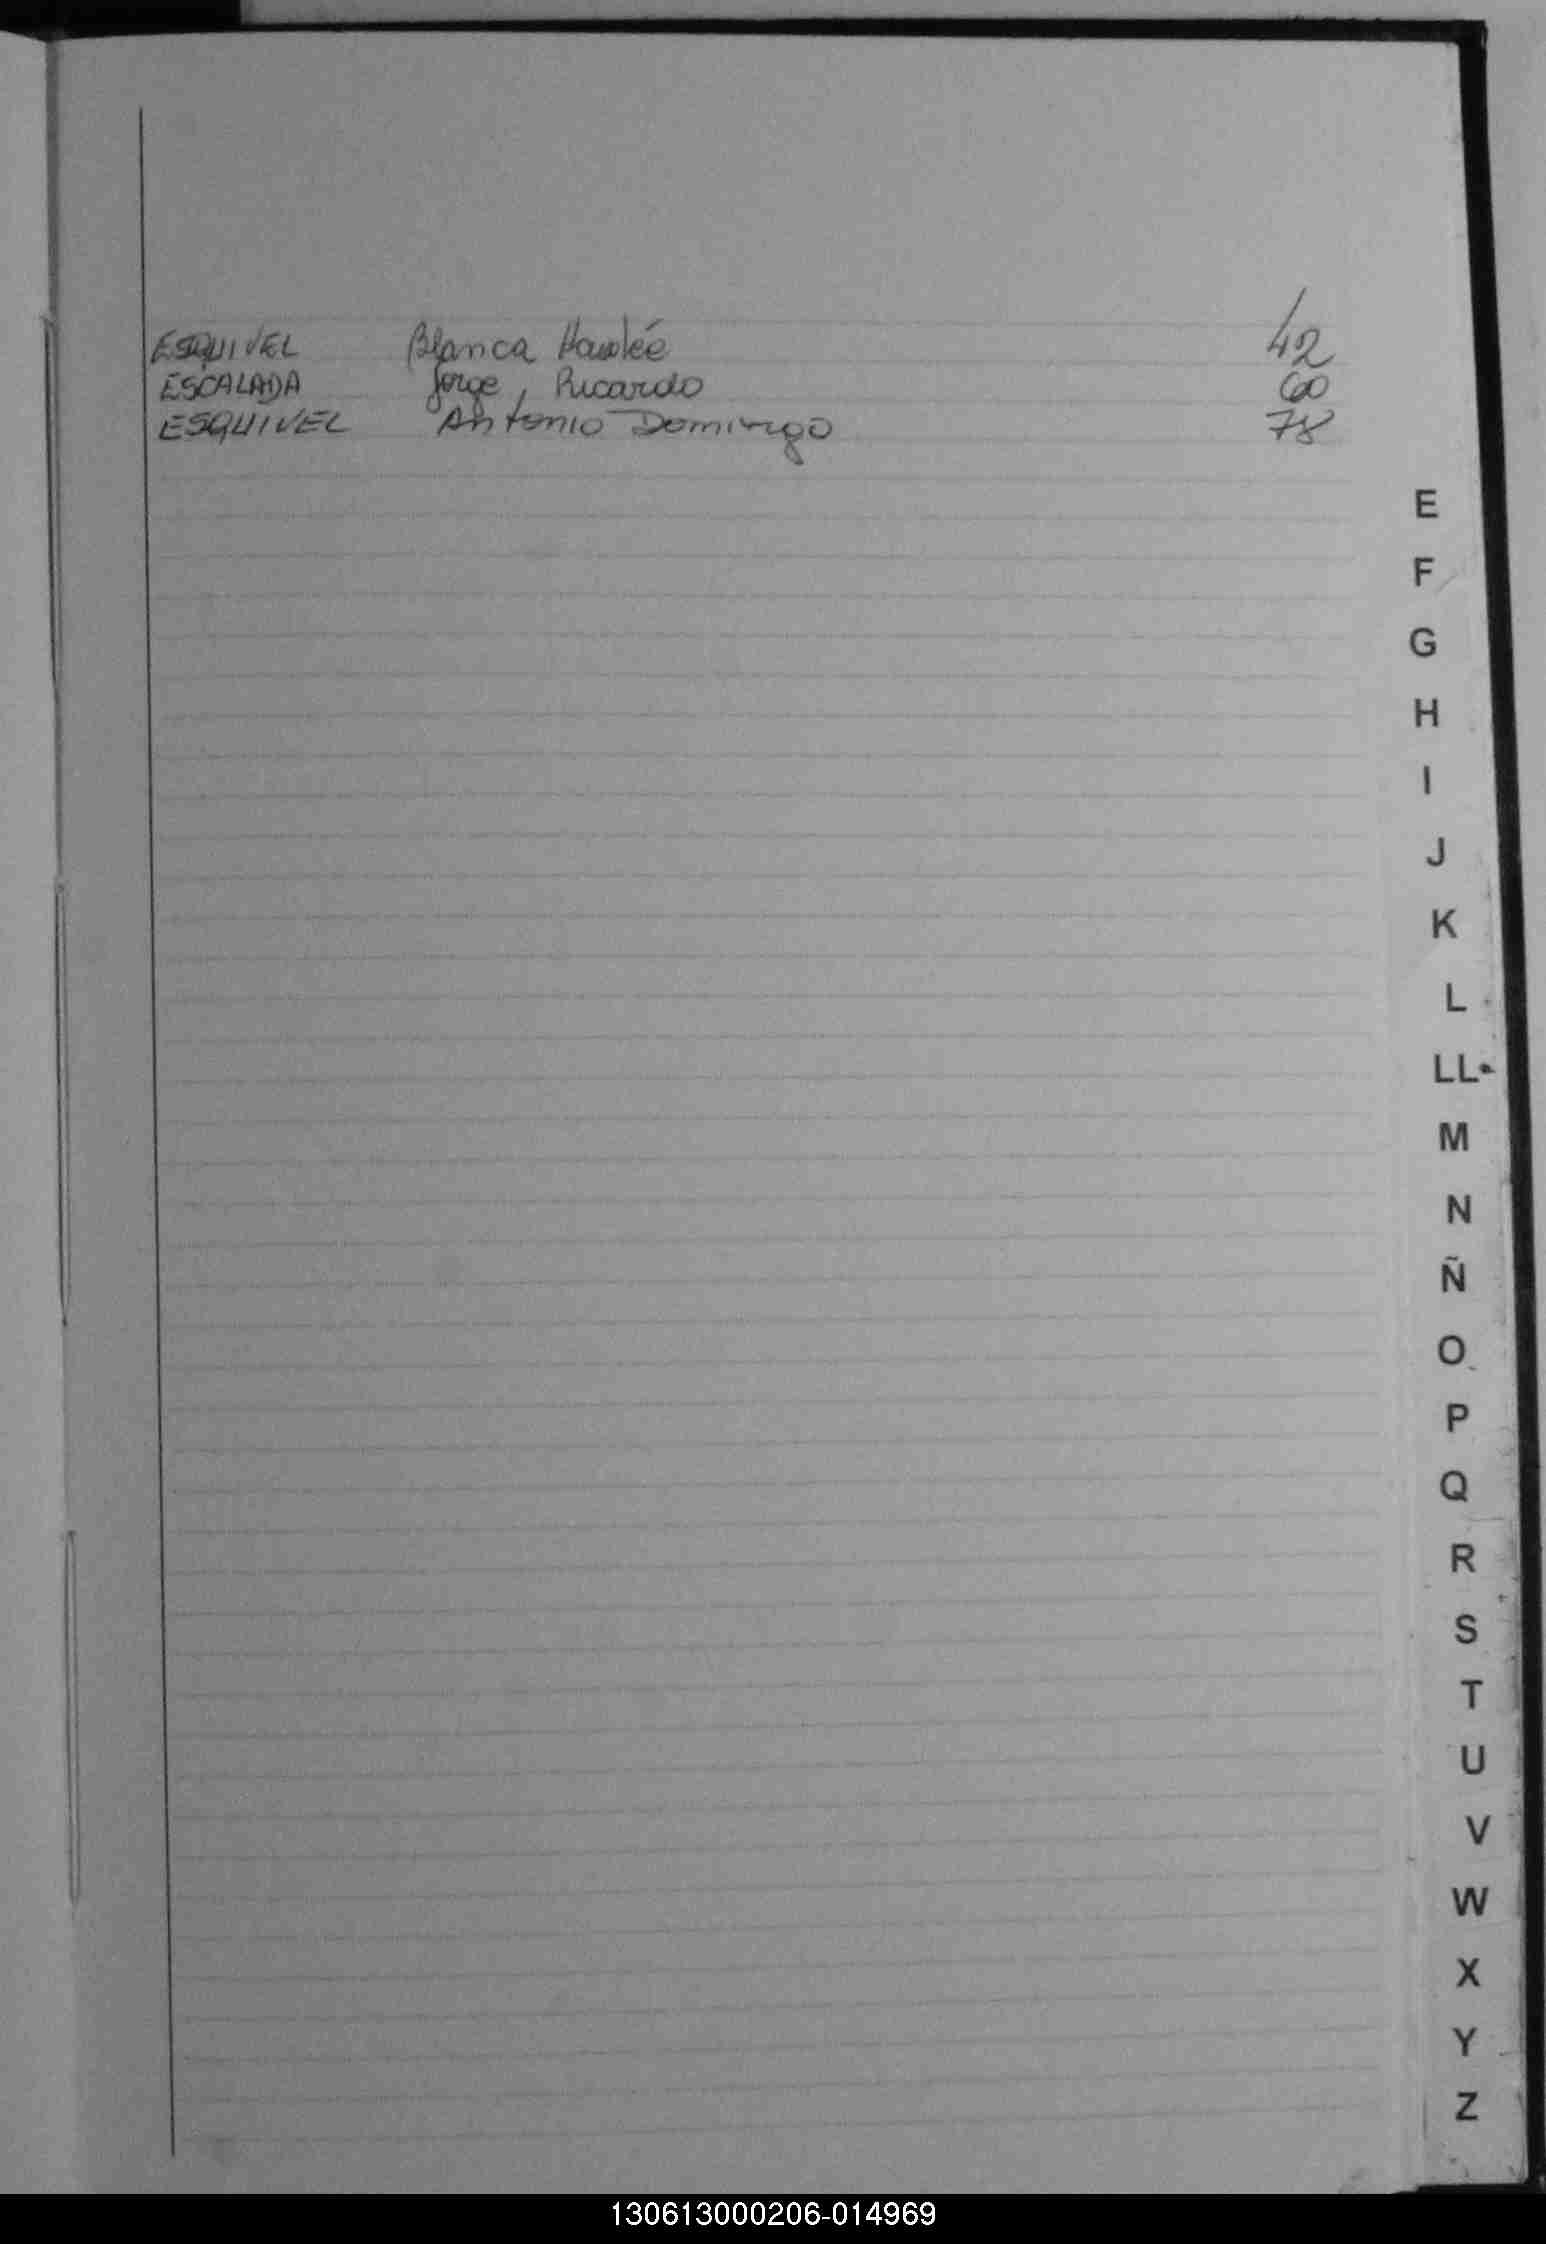 ESQUIVEL Blanca Haydée 42
ESCALADA Jorge, Ricardo 60
ESQUIVEL Antonio Domingo 78
E
F
G
H
I
J
K
L
LL
M
N
Ñ
O
P
Q
R
S
T
U
V
W
X
Y
Z
130613000206-014969